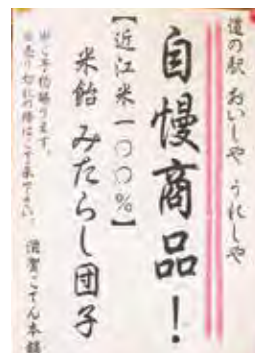 道の駅 おいしや うれしや
自慢商品!
【近江米一〇〇%】
米飴 みたらし団子
※売り切れの時はご了承下さい。
滋賀こてん本舗